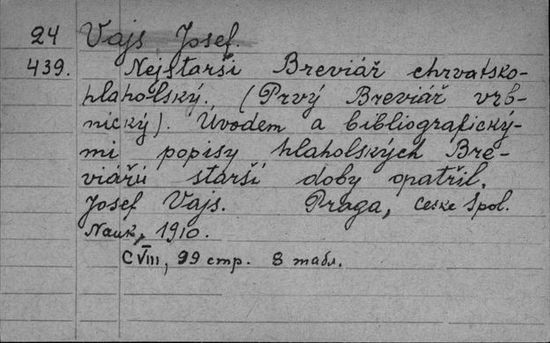 24 Vajs, Josef.
439. Nejstarši Breviář chrvatsko-
hlaholský. (Prvý Breviář vrb-
nický). Úvodem a bibliografický-
mi popisy hlaholských Bre-
viářů starší doby opatřil.
Josef Vajs. Praga, Ceske Spol.
Nauk, 1910.
CVIII, 99 стр. 8 табл.